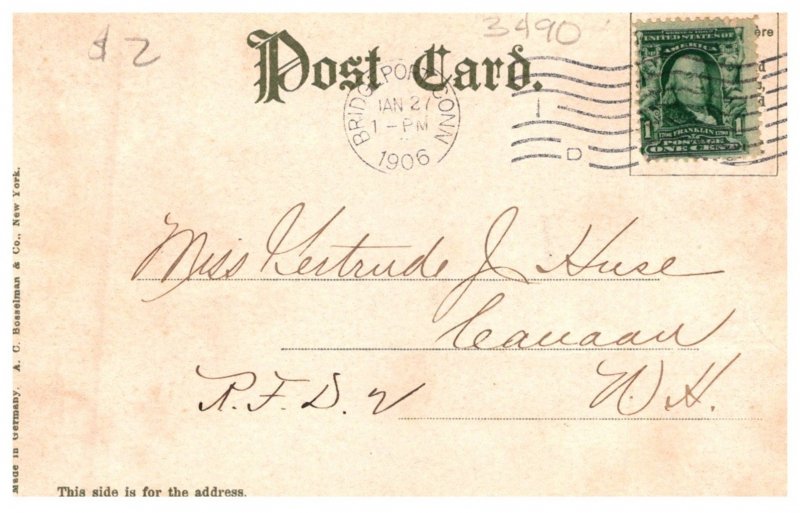 $2
3490
Post Card.
BRIDGEPORT CONN
JAN 27
1-PM
1906
D
ere
UNITED STATES OF
AMERICA
FRANKLIN
POSTAGE
ONE CENT
1
Miss Gertrude J Huse
Canaan
R.F.D. 2 N.H.
Made in Germany. A. C. Bosselman & Co., New York.
This side is for the address.